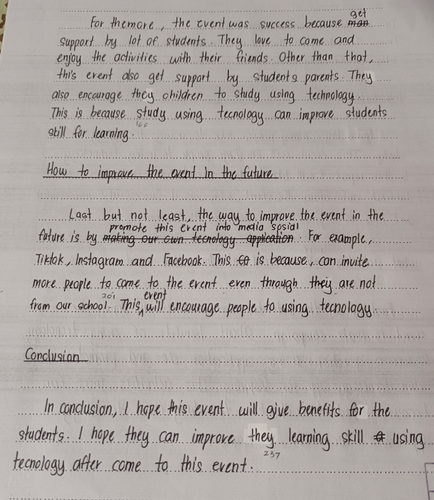 get
For themore, the event was success because man
support by lot of students. They love to come and
enjoy the activities with their friends. Other than that,
this event also get support by students parents. They
also encourage they children to study using technology.
This is because study using tecnology can improve students
skill for learning.
How to improve the event in the future
Last but not least, the way to improve the event in the
promote this event into media sosial
future is by making our own tecnology application. For example,
Tiktok, Instagram and Facebook. This is because, can invite
more people to come to the event even through they are not
201 event
from our school. This will encourage people to using tecnology.
Conclusion
In conclusion, I hope this event will give benefits for the
students. I hope they can improve they learning skill using
tecnology after come to this event.
237